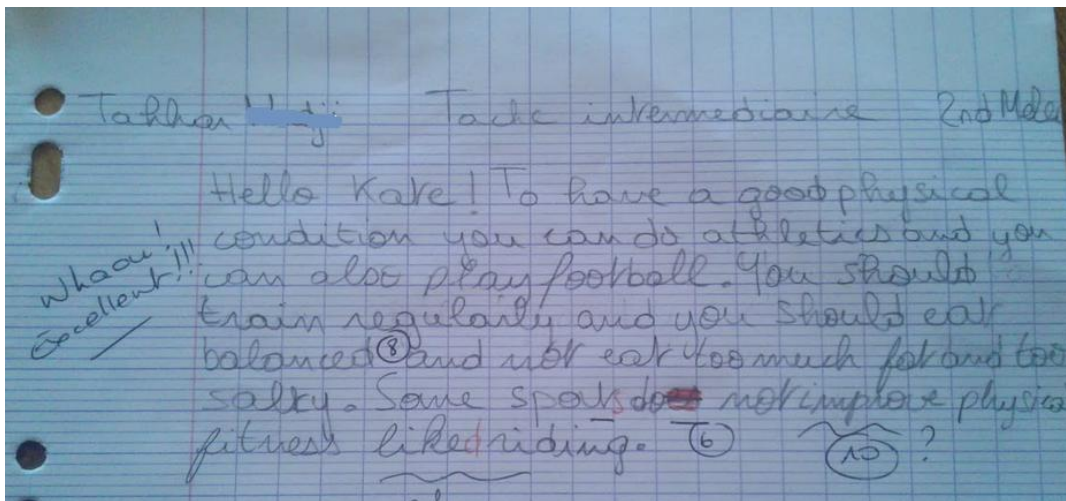 Tache intermediaire 2nd
Hello Kate! To have a good physical
condition you can do athletics and you
can also play football. You should
train regularly and you should eat
balanced ⑧ and not eat too much fat and too
salty. Some sports do not improve physica
fitness like riding. ⑥ ⑩ ?
Whaou!
Excellent!!!